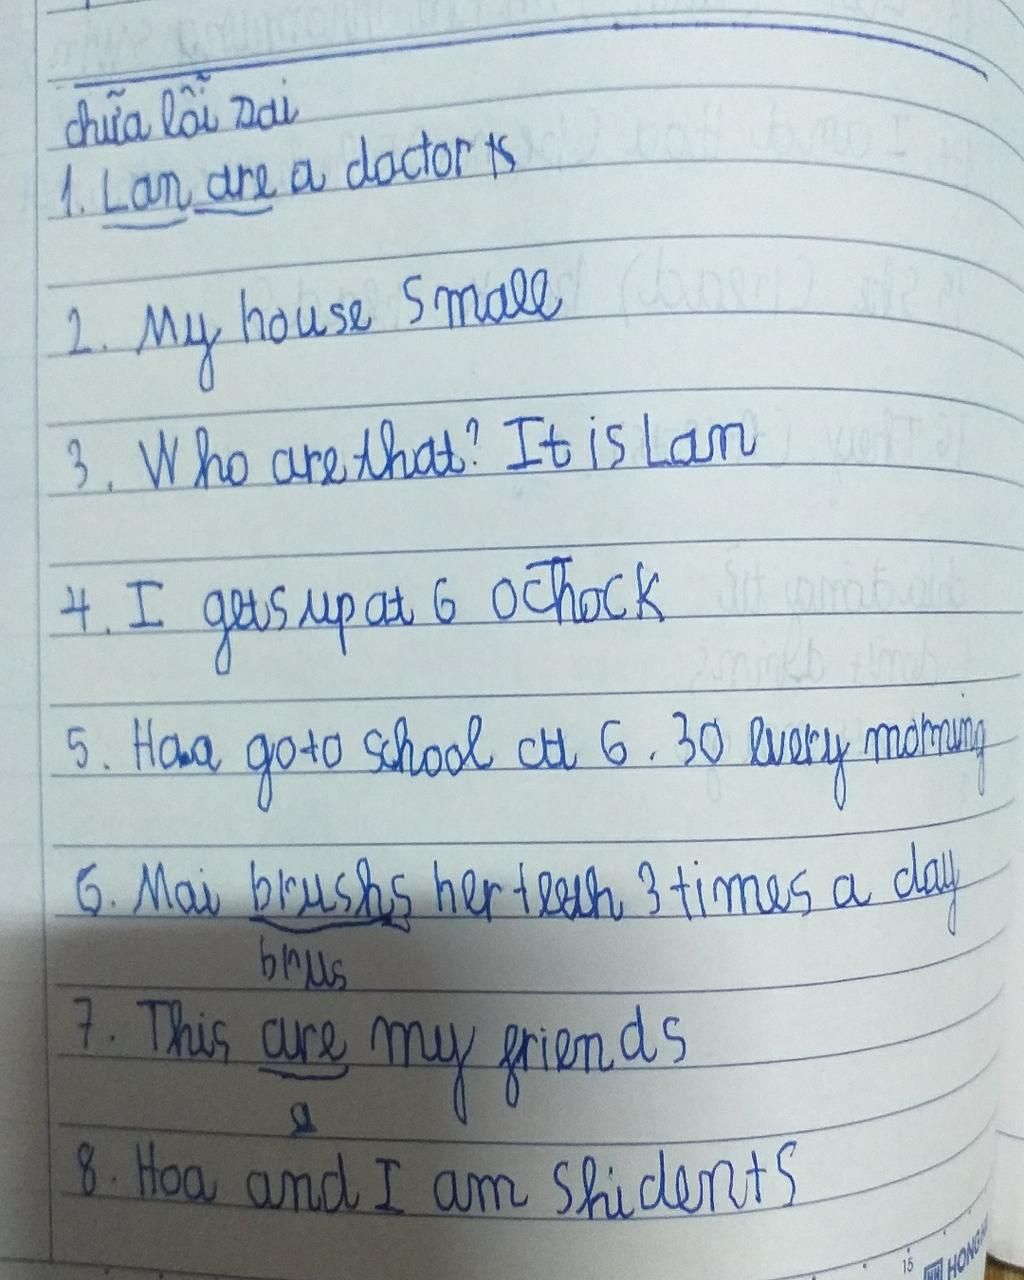 chữa lỗi sai
1. Lan are a doctor is
2. My house small
3. Who are that? It is Lan
4. I gets up at 6
5. Hoa go to school at 6.30 every morning
6. Mai brushs her teeth 3 times a day
brus
7. This are my friends
8. Hoa and I am students
15 HONG